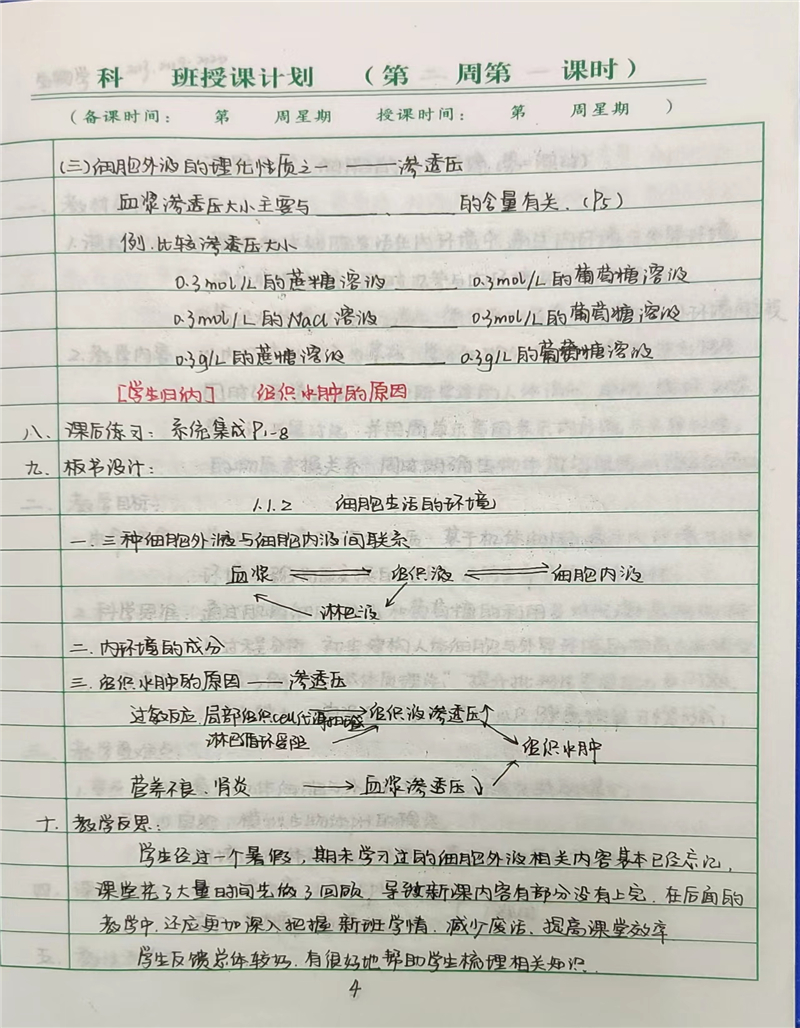 生物学 科 班授课计划 （第二周第一课时）
（备课时间： 第 周星期 授课时间： 第 周星期 ）
(三)细胞外液的理化性质之一 —— 渗透压
血浆渗透压大小主要与____、____的含量有关.(P5)
例.比较渗透压大小
0.3mol/L的蔗糖溶液____0.3mol/L的葡萄糖溶液
0.3mol/L的NaCl溶液____0.3mol/L的葡萄糖溶液
0.3g/L的蔗糖溶液____0.3g/L的葡萄糖溶液
[学生归纳] 组织水肿的原因
八、课后练习：系统集成P1-8
九、板书设计：
1.1.2 细胞生活的环境
一.三种细胞外液与细胞内液间联系
血浆 ⇌ 组织液 ⇌ 细胞内液
淋巴液
二.内环境的成分
三.组织水肿的原因 —— 渗透压
过敏反应.局部组织cell代谢 → 组织液渗透压↑
淋巴循环受阻
组织水肿
营养不良.肾炎 → 血浆渗透压↓
十.教学反思：
学生经过一个暑假，期末学习过的细胞外液相关内容基本已经忘记，
课堂花了大量时间先做了回顾，导致新课内容有部分没有上完.在后面的
教学中,还应更加深入把握新班学情.减少废话、提高课堂效率
学生反馈总体较好,有很好地帮助学生梳理相关知识.
4